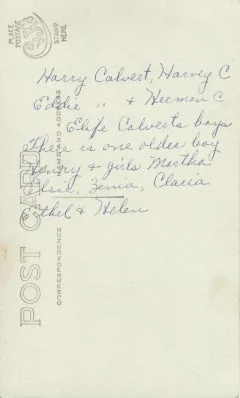 PLACE
POSTAGE
STAMP
HERE
Harry Calvert, Harvey C
Eddie " & Herman C
Elife Calverts boys
There is one older boy
Henry & girls Martha
Elsie, Zenia, Claria
Ethel & Helen
POST CARD
NAME AND ADDRESS
CORRESPONDENCE